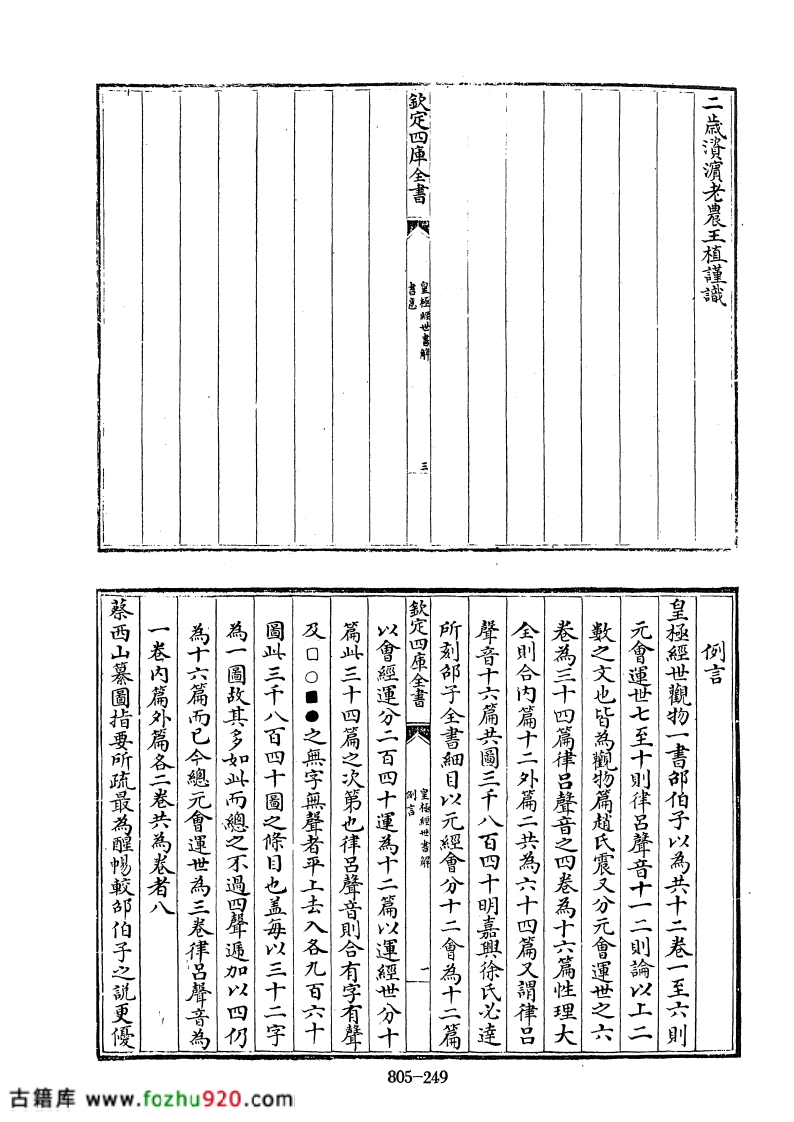 二歳濱濱老農王植謹識
欽定四庫全書
皇極經世書解
書意
三
例言
皇極經世觀物一書邵伯子以為共十二卷一至六則
元會運世七至十則律呂聲音十一二則論以上二
數之文也皆為觀物篇趙氏震又分元會運世之六
卷為三十四篇律呂聲音之四卷為十六篇性理大
全則合内篇十二外篇二共為六十四篇又謂律呂
聲音十六篇共圖三千八百四十明嘉興徐氏必達
所刻邵子全書細目以元經會分十二會為十二篇
欽定四庫全書
皇極經世書解
例言
一
以會經運分二百四十運為十二篇以運經世分十
篇此三十四篇之次第也律呂聲音則合有字有聲
及□○■●之無字無聲者平上去入各九百六十
圖此三千八百四十圖之條目也蓋每以三十二字
為一圖故其多如此而總之不過四聲遞加以四仍
為十六篇而已今總元會運世為三卷律呂聲音為
一卷内篇外篇各二卷共為卷者八
蔡西山纂圖指要所疏最為醒暢較邵伯子之說更優
805-249
古籍库 www.fozhu920.com